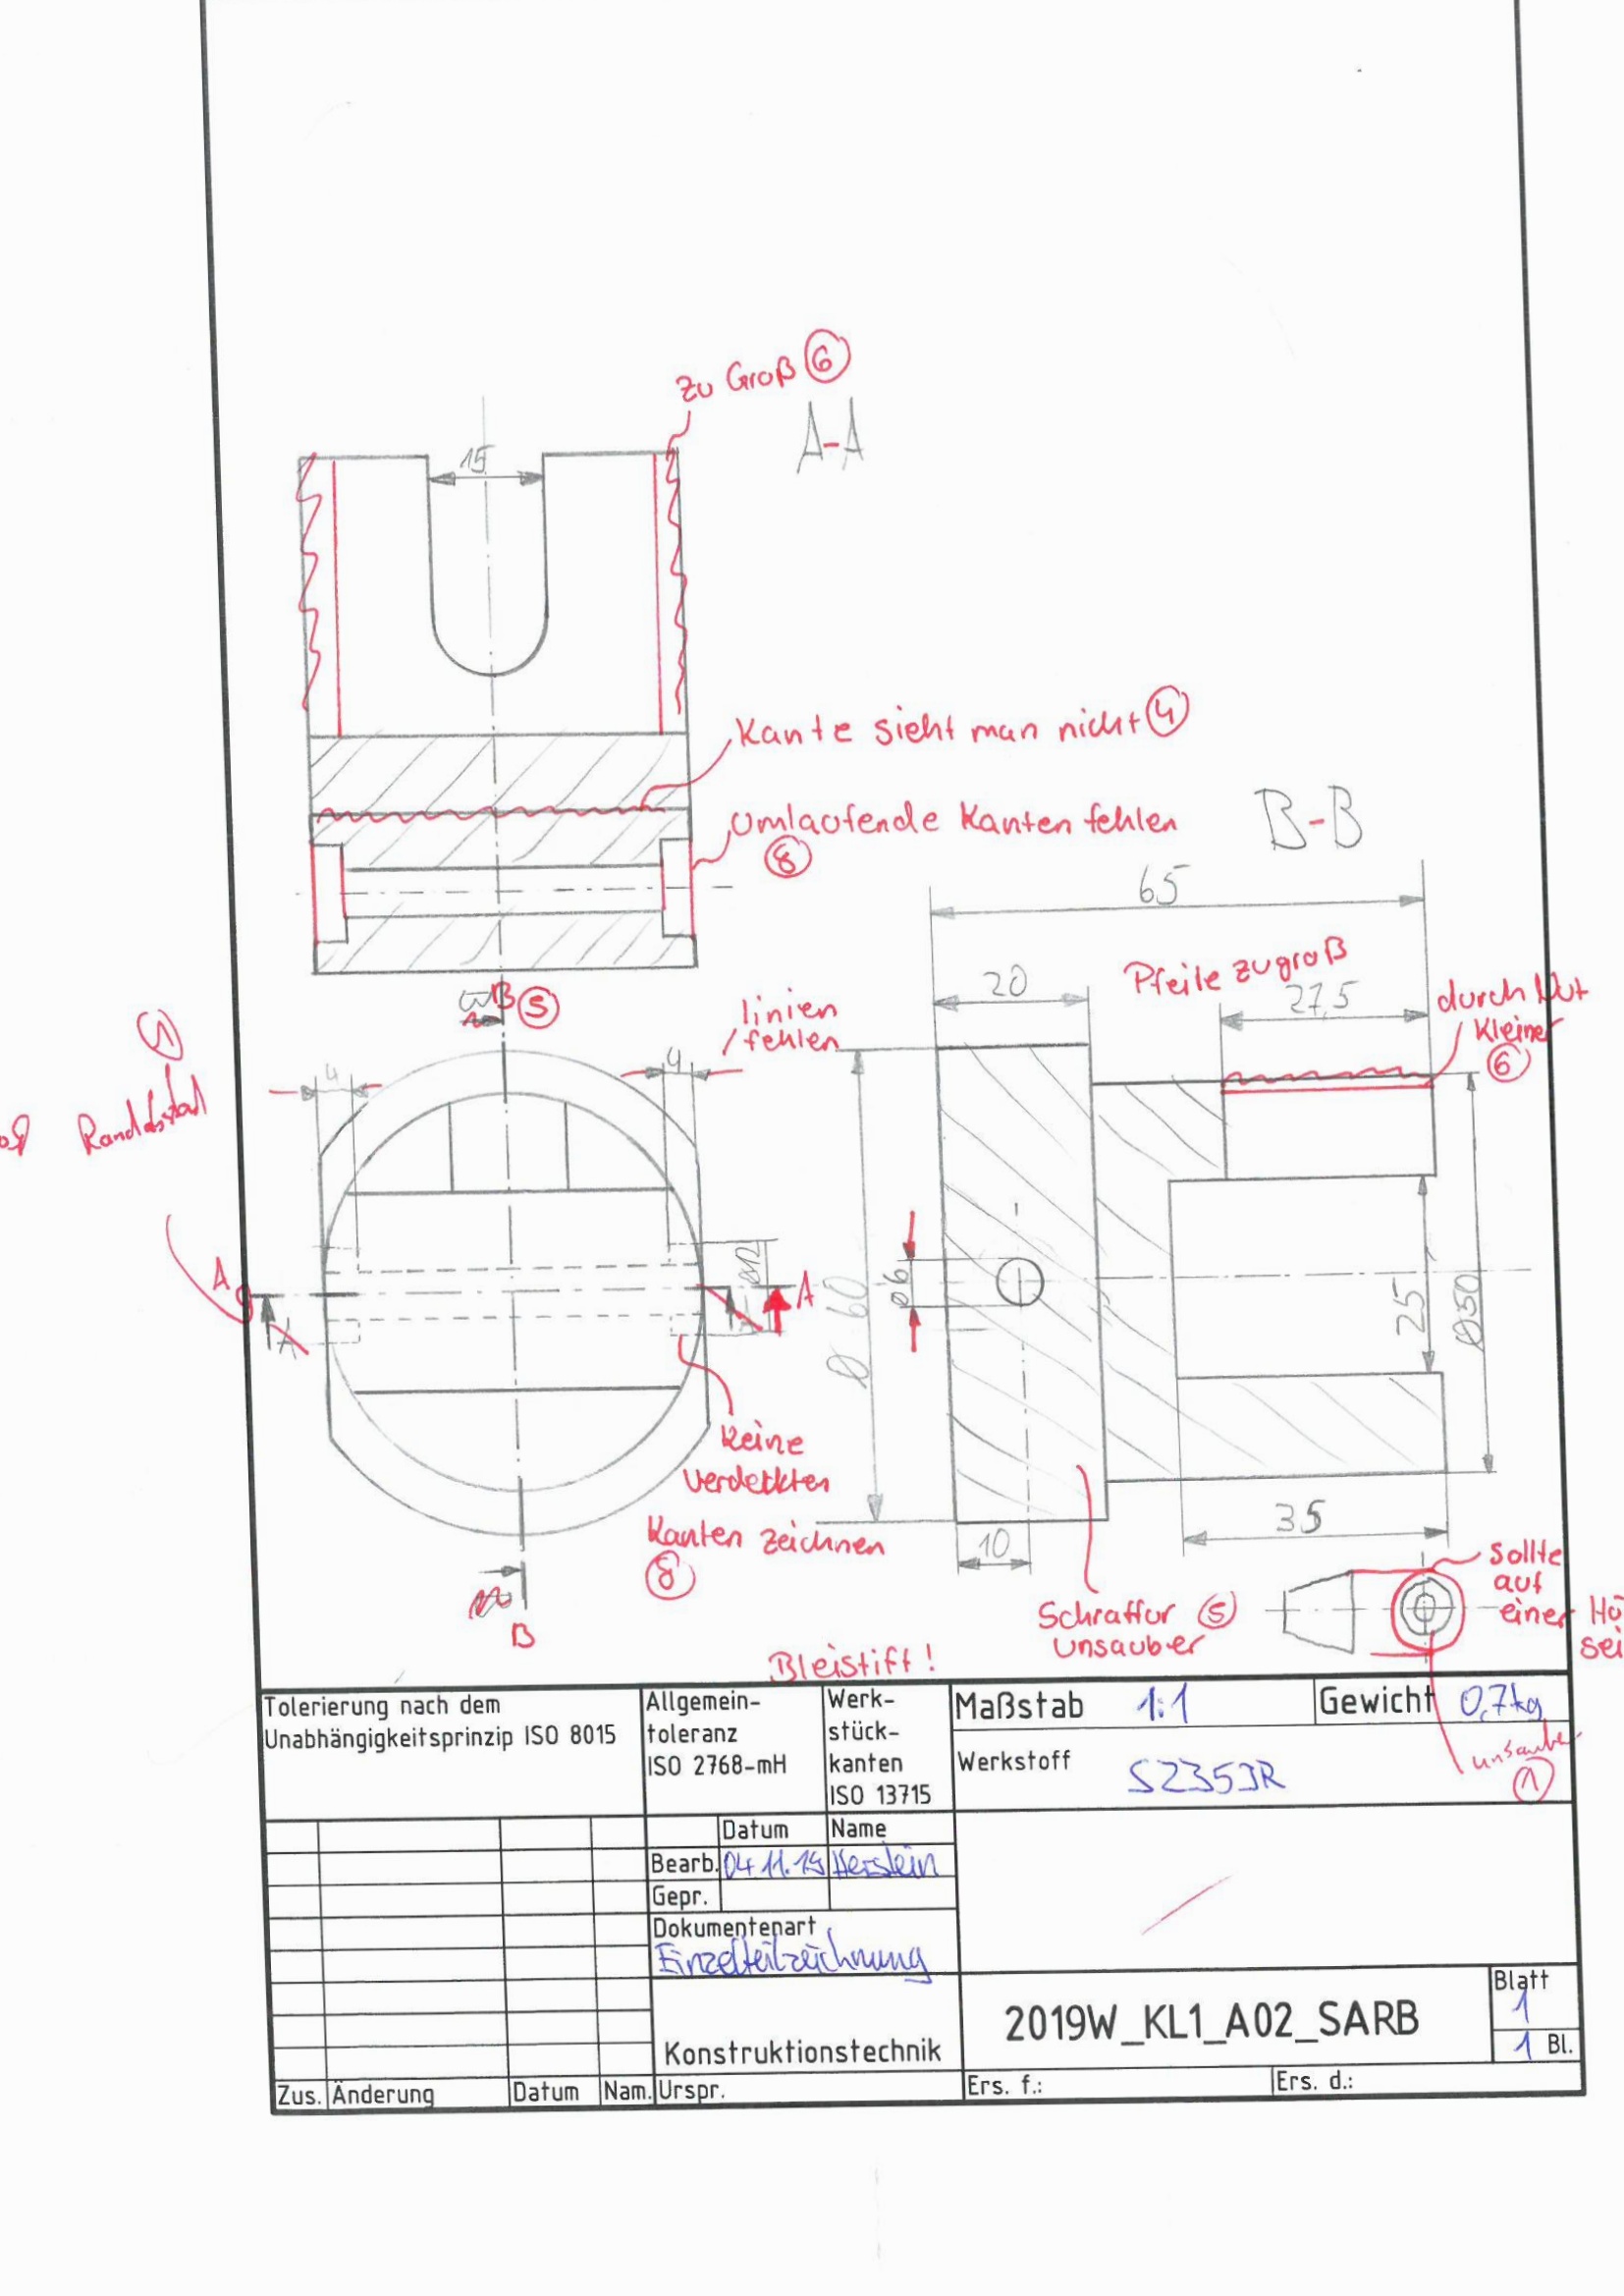 zu Groß 6
A-A
15
Kante sieht man nicht 4
Umlaufende Kanten fehlen
8
B-B
65
20
Pfeile zu groß
27,5
durch Nut
kleiner
6
B 5
linien
fehlen
4
4
Randabstand
A
A
Ø12
Ø 60
Ø6
25
Ø50
keine
verdeckten
Kanten zeichnen
8
B
10
35
Schraffur 5
unsauber
Sollte
auf
einer Hö
sei
Bleistift!
Tolerierung nach dem
Unabhängigkeitsprinzip ISO 8015
Allgemein-
toleranz
ISO 2768-mH
Werk-
stück-
kanten
ISO 13715
Maßstab 1:1
Gewicht 0,7kg
Werkstoff S235JR
unsauber
1
Datum Name
Bearb. 04.11.19 Herstein
Gepr.
Dokumentenart
Einzelteilzeichnung
Konstruktionstechnik
2019W_KL1_A02_SARB
Blatt
1
1 Bl.
Zus. Änderung Datum Nam. Urspr. Ers. f.: Ers. d.: